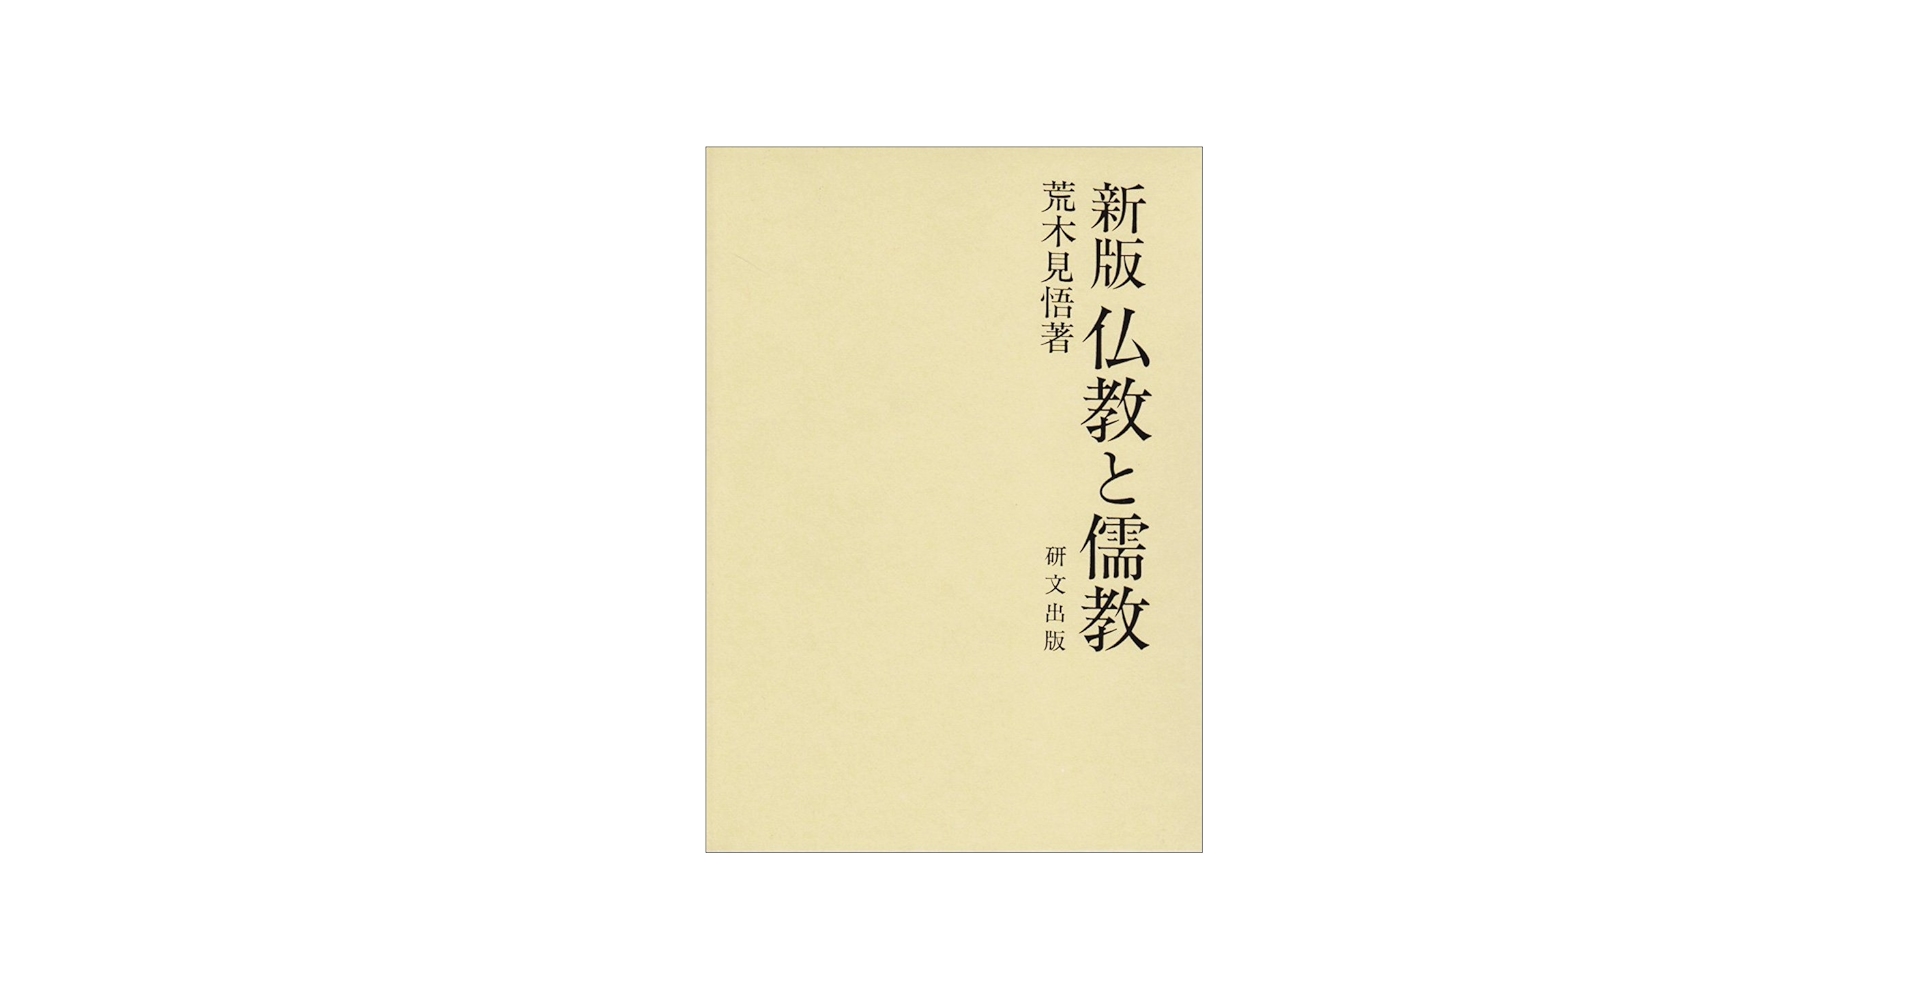 新版 仏教と儒教
荒木見悟著
研文出版